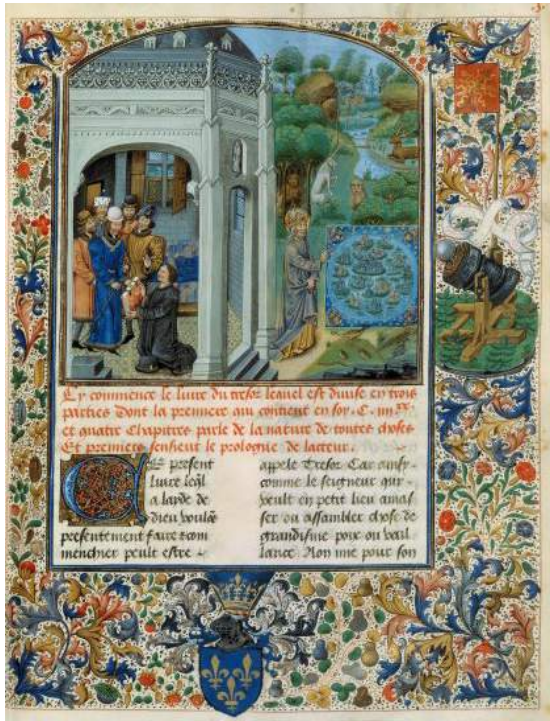 Cy commence le livre du tresor lequel est divise en trois
parties Dont la premiere qui contient en soy .C. iiii xx
et quatre Chapitres parle de la nature de toutes choses
Et premiers senssieut le prologue de lacteur.
Ce present
livre leql̄
a laide de
dieu voulōs
presentement faire & com
menchier peult estre
appele Tresor Car ainsy
comme le seigneur qui
veult en petit lieu amas
ser ou assambler chose de
grandisme poix ou vail
lance. Non mie pour son